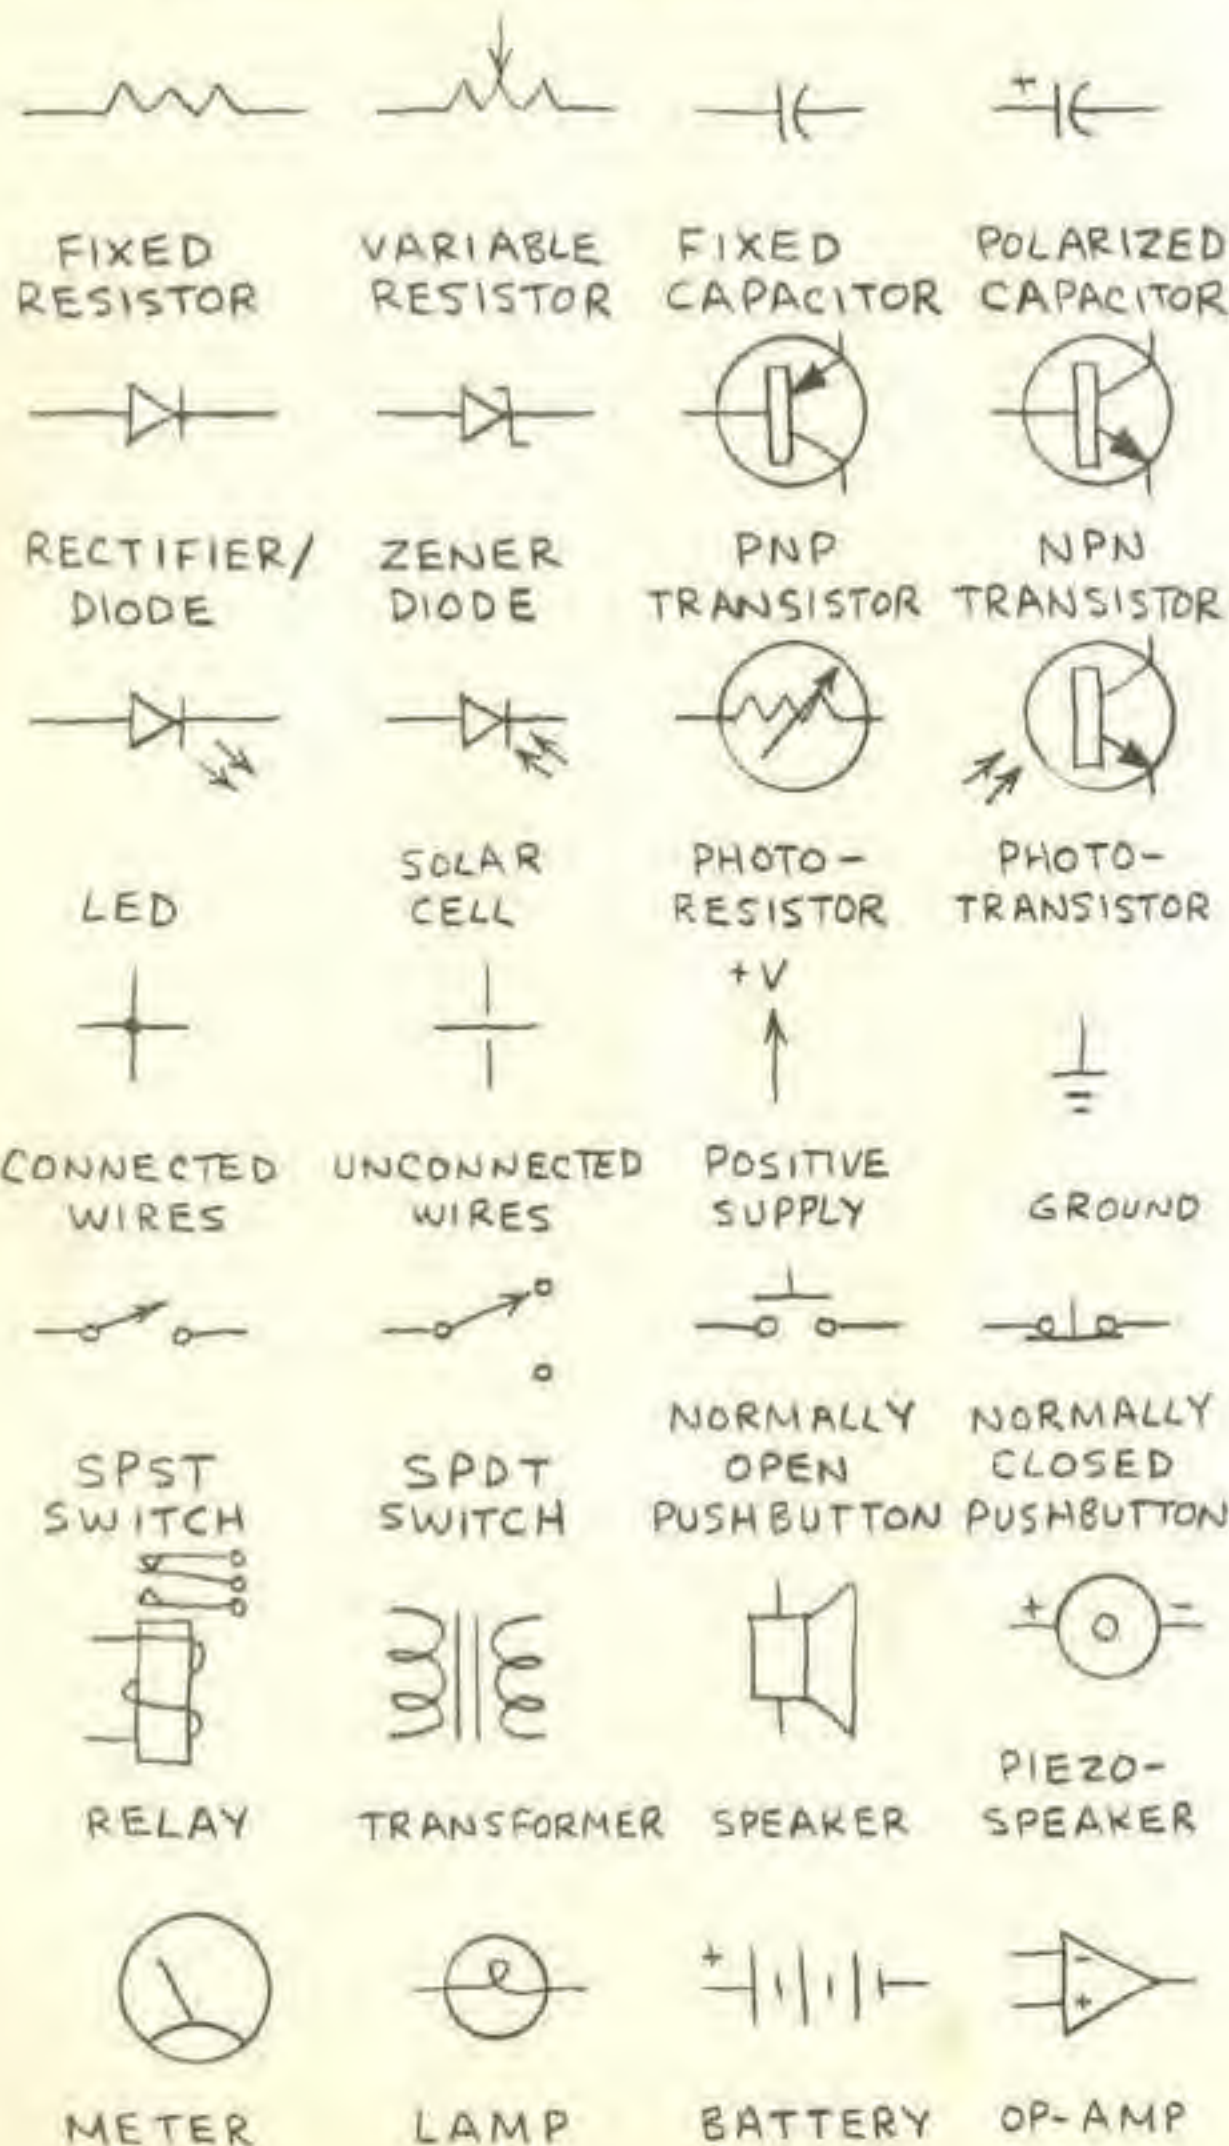 +
FIXED RESISTOR
VARIABLE RESISTOR
FIXED CAPACITOR
POLARIZED CAPACITOR
RECTIFIER/ DIODE
ZENER DIODE
PNP TRANSISTOR
NPN TRANSISTOR
LED
SOLAR CELL
PHOTO- RESISTOR
PHOTO- TRANSISTOR
+V
CONNECTED WIRES
UNCONNECTED WIRES
POSITIVE SUPPLY
GROUND
SPST SWITCH
SPDT SWITCH
NORMALLY OPEN PUSHBUTTON
NORMALLY CLOSED PUSHBUTTON
+ -
RELAY
TRANSFORMER
SPEAKER
PIEZO- SPEAKER
+
-
+
METER
LAMP
BATTERY
OP-AMP